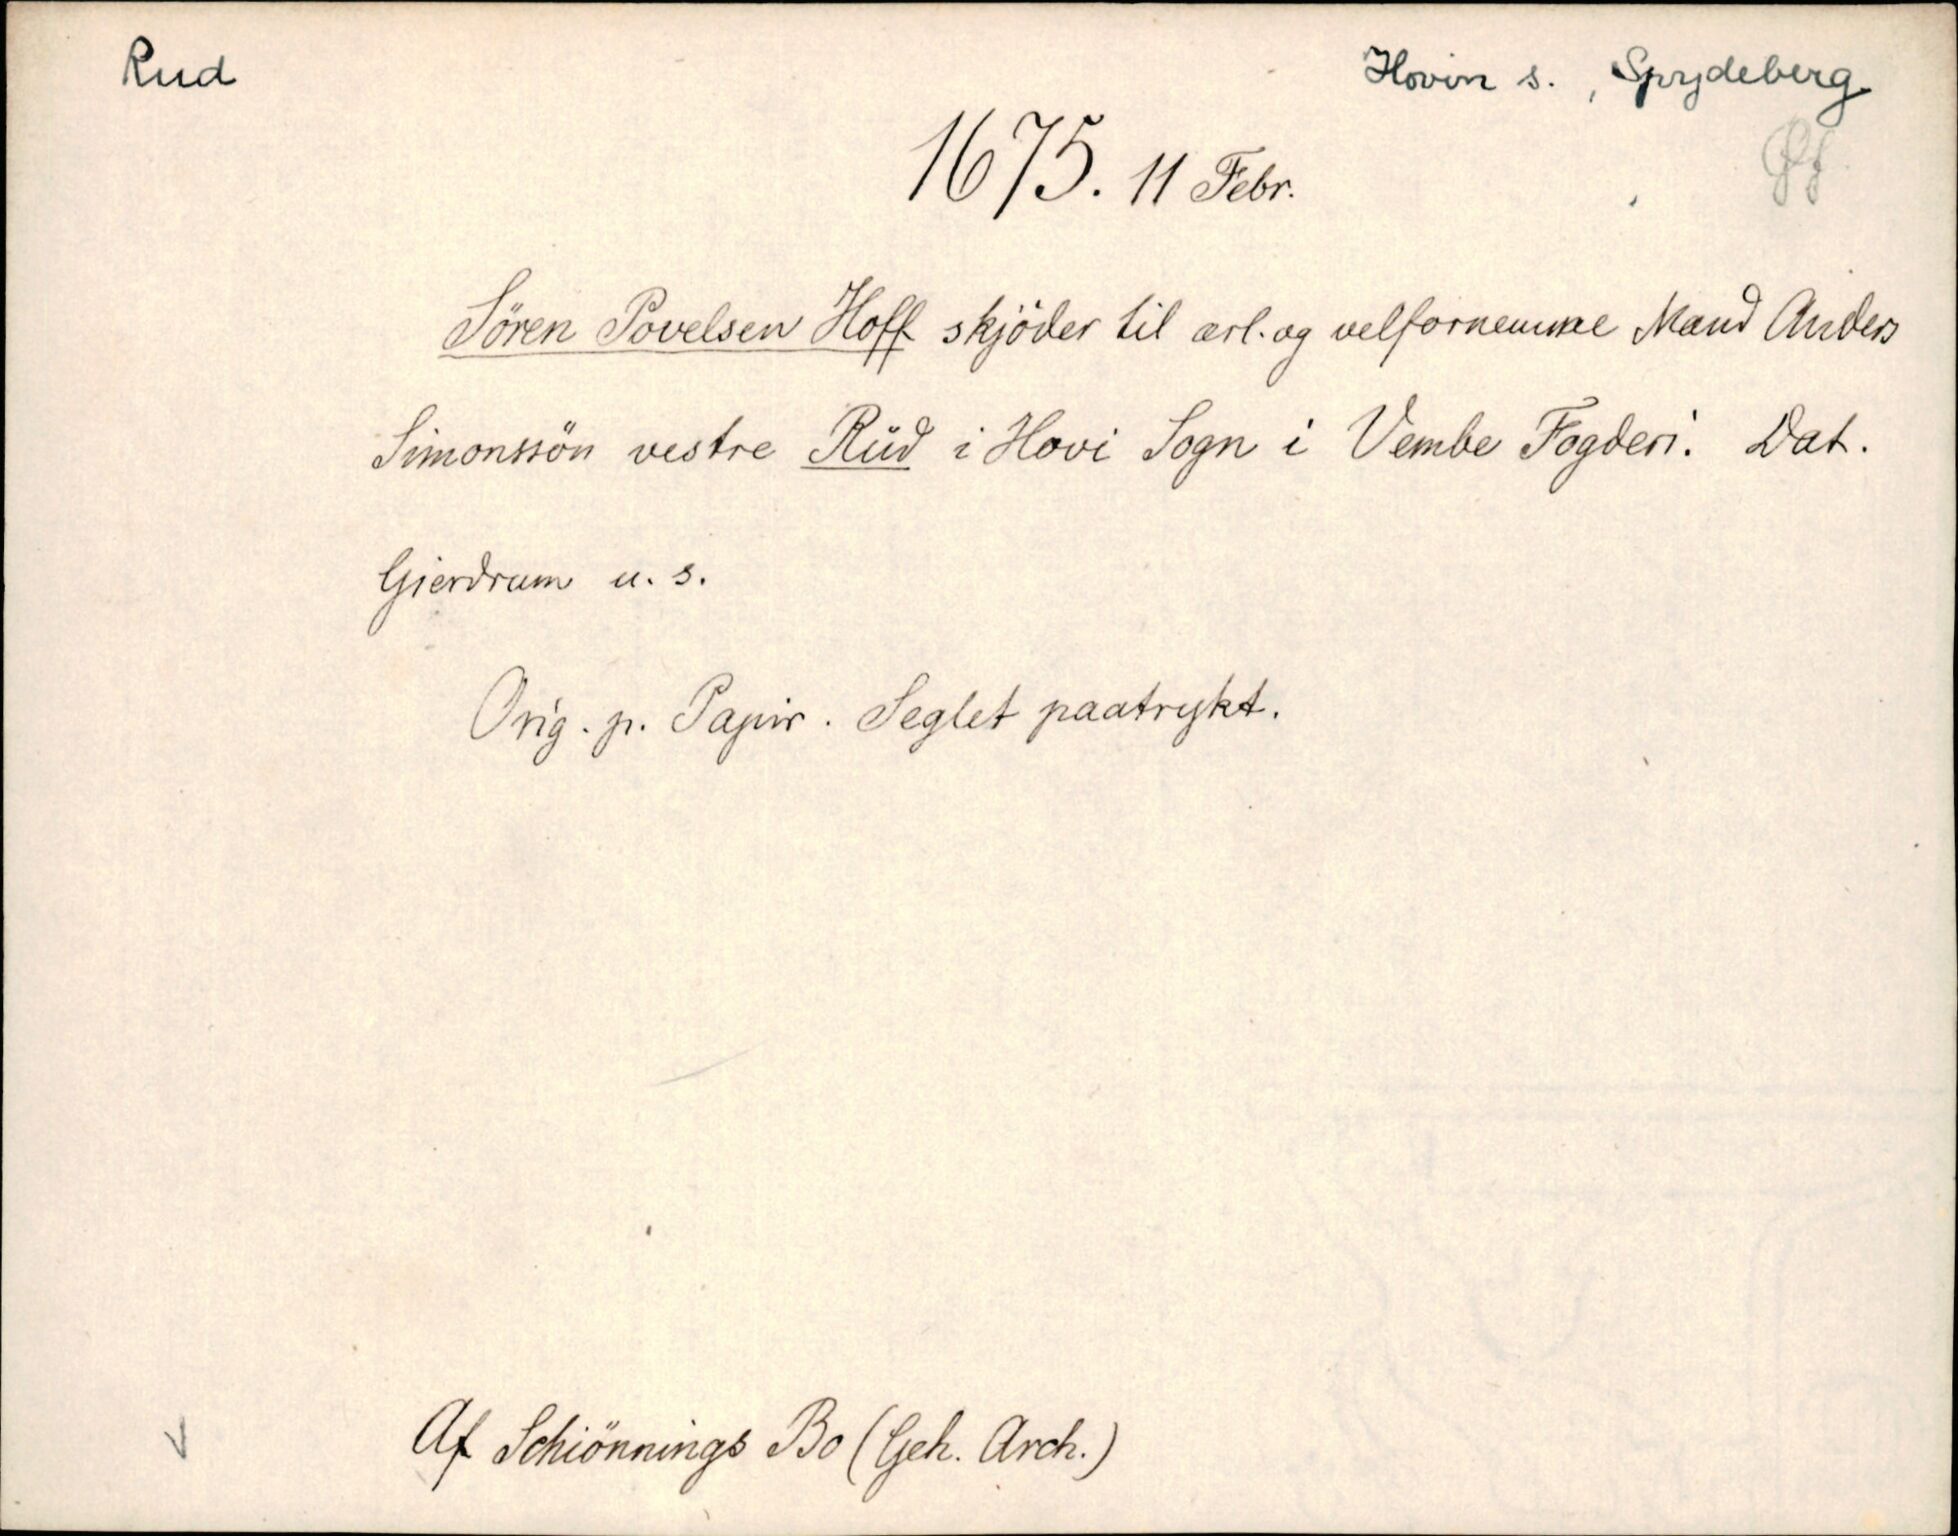 Rud
Hovin s., Spydeberg
Øf
1675. 11 Febr.
Sören Povelsen Hoff skjöder til ærl. og velfornemme Mand Anders
Simonssön vestre Rüd i Hovi Sogn i Vembe Fogderi. Dat.
Gierdrum u. s.
Orig. p. Papir. Seglet paatrykt.
Af Schiönnings Bo (Geh. Arch.)